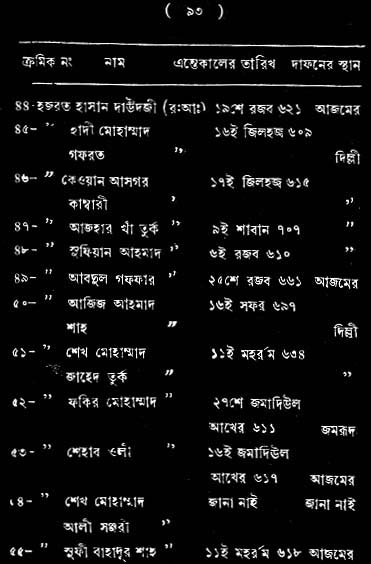 ( ৯৩ )
ক্রমিক নং নাম এন্তেকালের তারিখ দাফনের স্থান
৪৪-হজরত হাসান দাউদজী (র:আঃ) ১৯শে রজব ৬২১ আজমের
৪৫- " হাদী মোহাম্মাদ ১৬ই জিলহজ্জ ৬০৯
গফরত " দিল্লী
৪৬- " কেওয়ান আসগর ১৭ই জিলহজ্জ ৬১৫
কাম্বারী " "
৪৭- " আজহার খাঁ তুর্ক " ৯ই শাবান ৭০৭ "
৪৮- " সুফিয়ান আহমাদ " ৬ই রজব ৬১০ "
৪৯- " আবদুল গফফার " ২৫শে রজব ৬৬১ আজমের
৫০- " আজিজ আহমাদ ১৬ই সফর ৬৯৭
শাহ " দিল্লী
৫১- " শেখ মোহাম্মাদ ১১ই মহর্রম ৬৩৪
জাহেদ তুর্ক " "
৫২- " ফকির মোহাম্মাদ " ২৭শে জমাদিউল
আখের ৬১১ জমরূদ
৫৩- " শেহাব ওলী " ১৬ই জমাদিউল
আখের ৬১৭ আজমের
৫৪- " শেখ মোহাম্মাদ জানা নাই জানা নাই
আলী সঞ্জরী "
৫৫- " সুফী বাহাদুর শাহ " ১১ই মহর্রম ৬১৮ আজমের